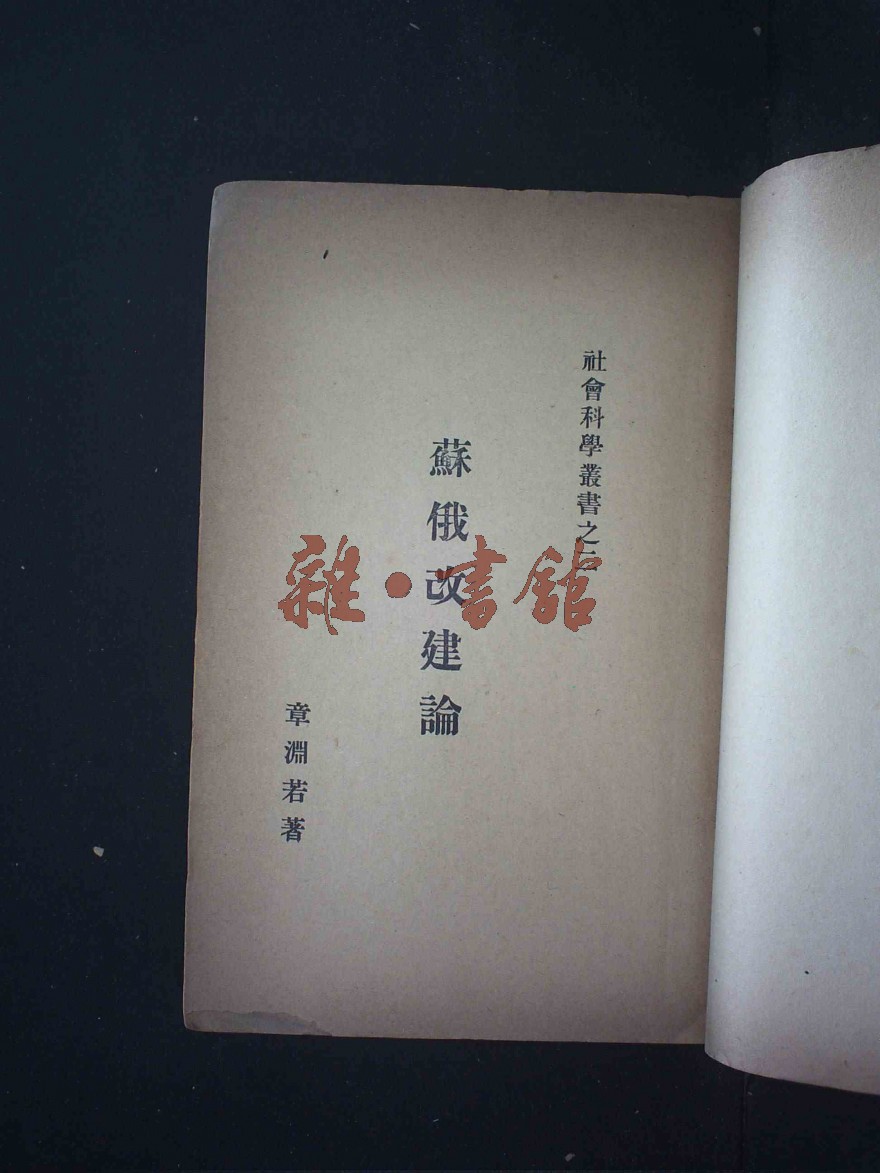 社會科學叢書之二
蘇俄改建論
章淵若著
雜·書館